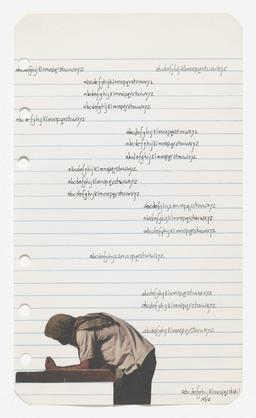 abcdefghijklmnopqrstuvwxyz abcdefghijklmnopqrstuvwxyz
abcdefghijklmnopqrstuvwxyz
abcdefghijklmnopqrstuvwxyz
abcdefghijklmnopqrstuvwxyz
abcdefghijklmnopqrstuvwxyz
abcdefghijklmnopqrstuvwxyz
abcdefghijklmnopqrstuvwxyz
abcdefghijklmnopqrstuvwxyz
abcdefghijklmnopqrstuvwxyz
abcdefghijklmnopqrstuvwxyz
abcdefghijklmnopqrstuvwxyz
abcdefghijklmnopqrstuvwxyz
abcdefghijklmnopqrstuvwxyz
abcdefghijklmnopqrstuvwxyz
abcdefghijklmnopqrstuvwxyz
abcdefghijklmnopqrstuvwxyz
abcdefghijklmnopqrstuvwxyz
abcdefghijklmnopqrstuvwxyz
xyz